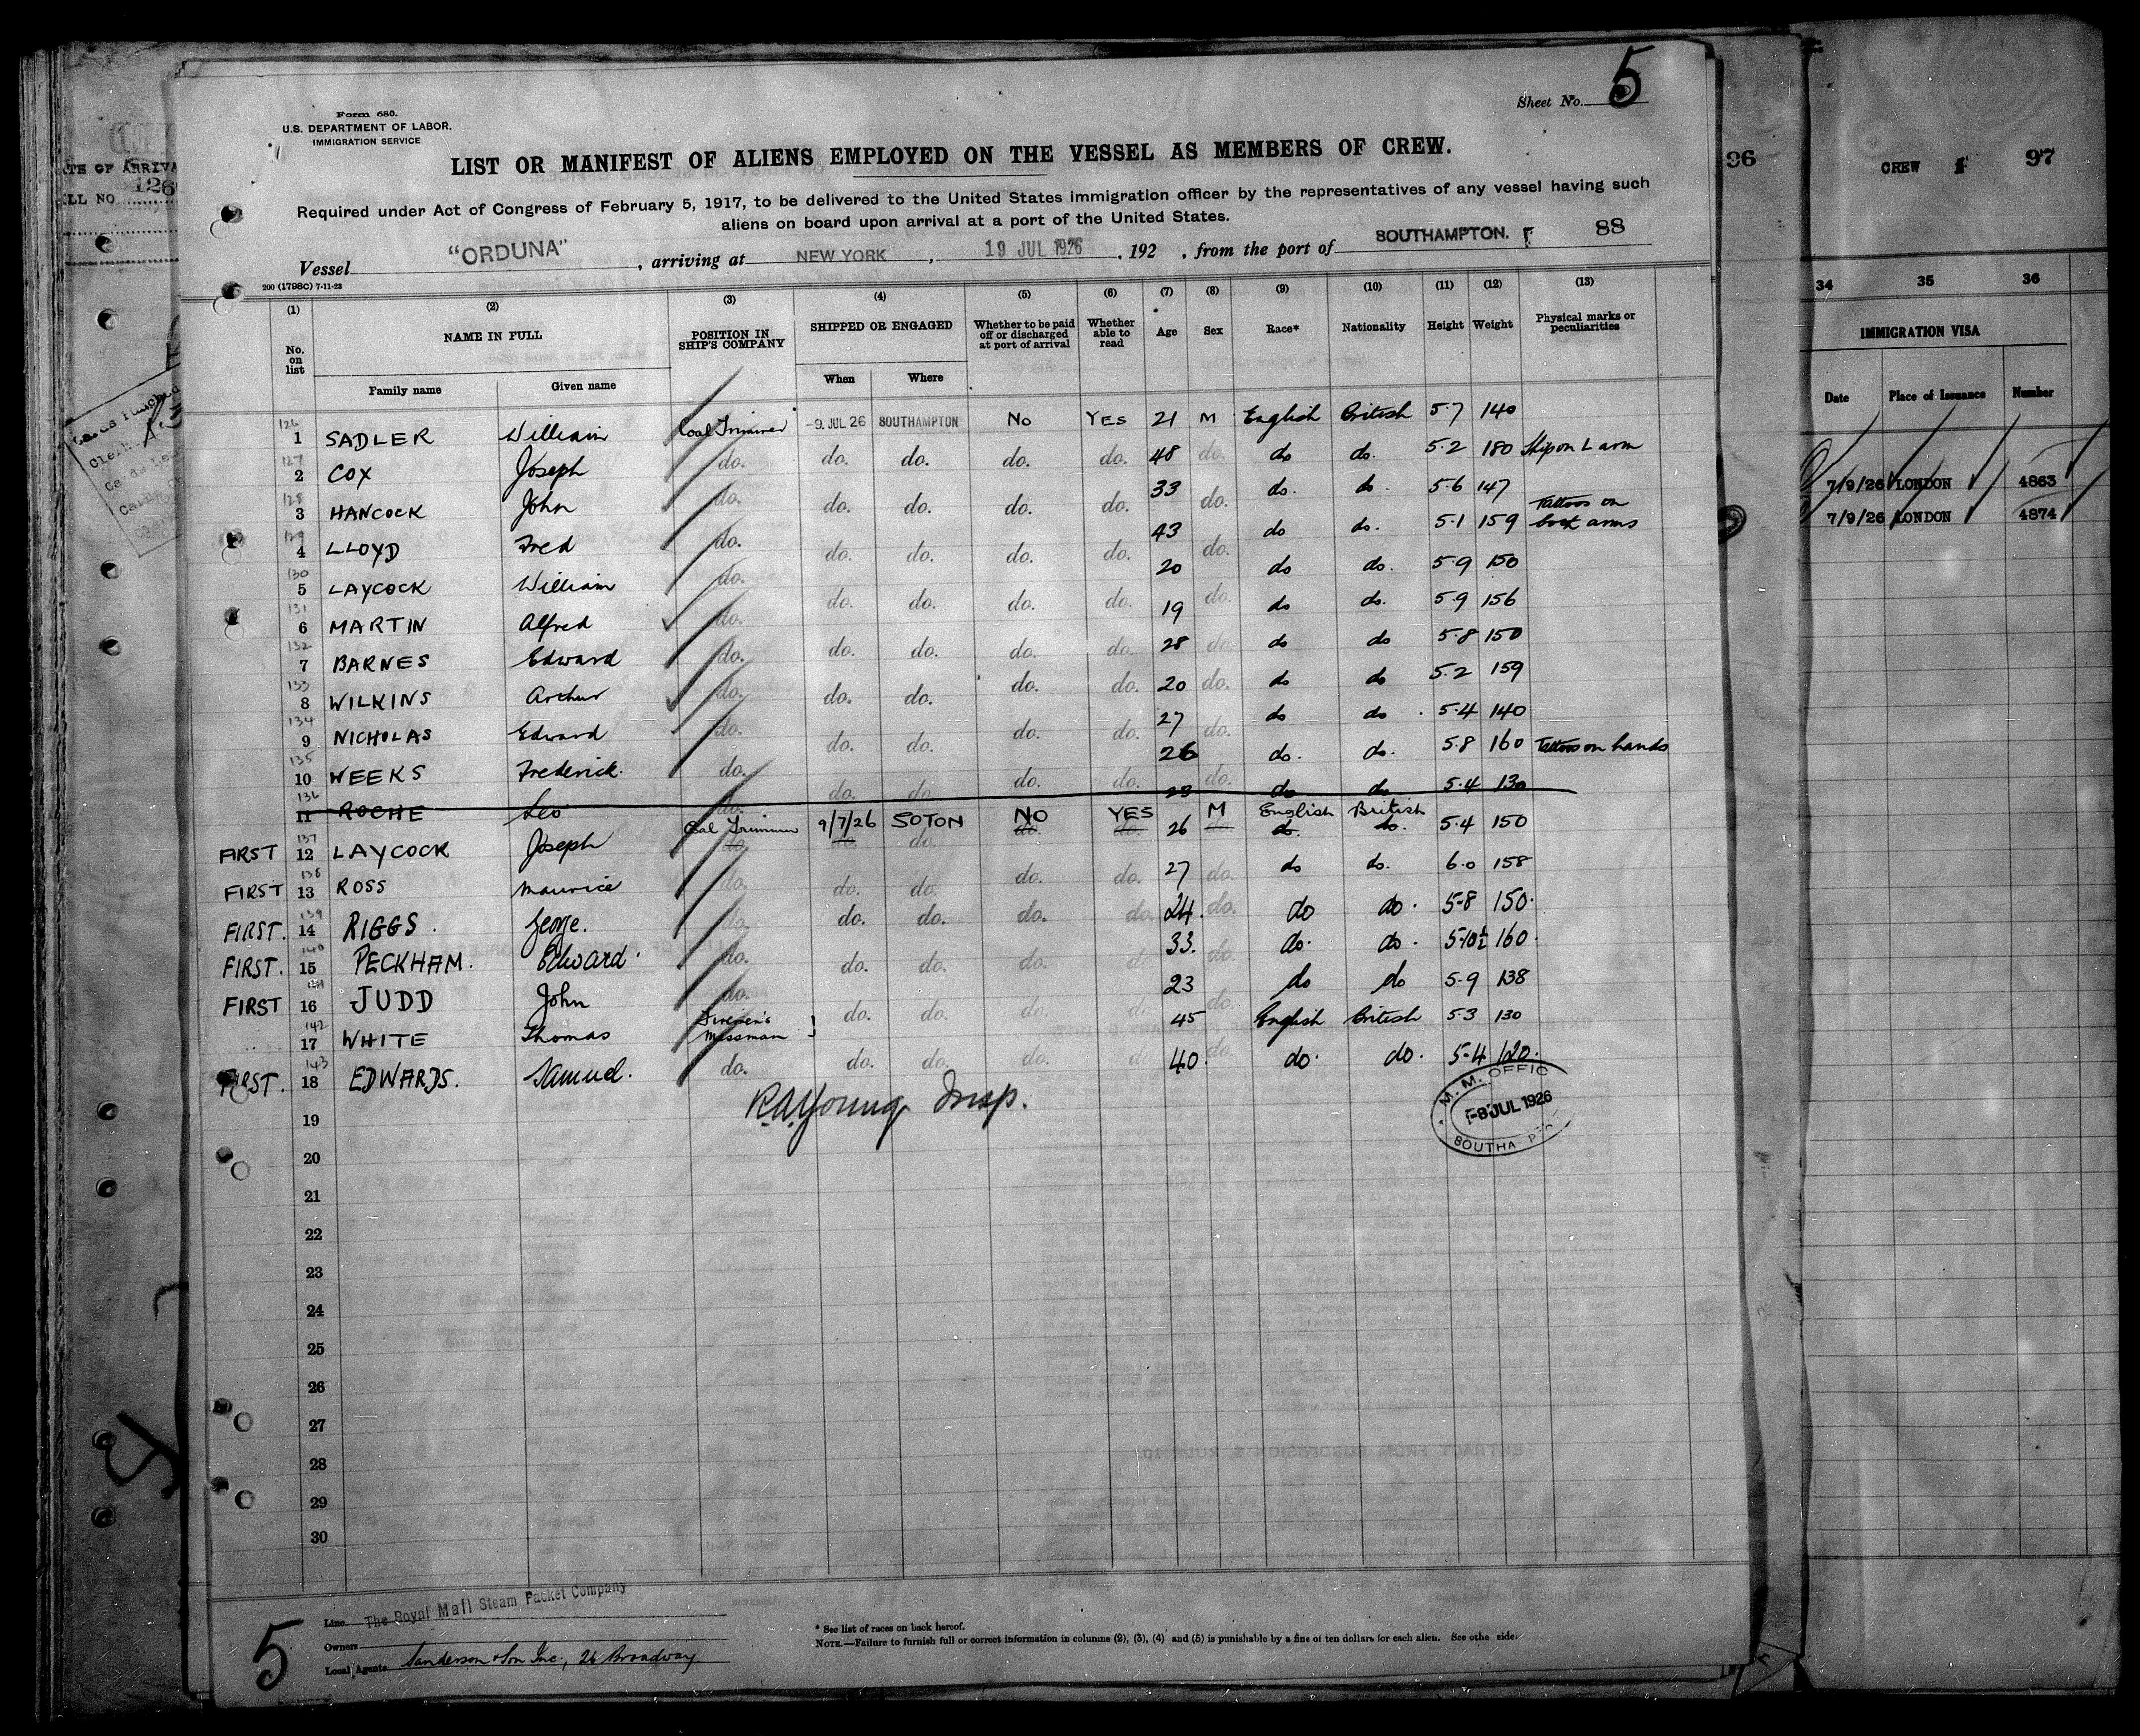 5
Sheet No.
Form 680.
U.S. DEPARTMENT OF LABOR.
IMMIGRATION SERVICE
LIST OR MANIFEST OF ALIENS EMPLOYED ON THE VESSEL AS MEMBERS OF CREW.
Required under Act of Congress of February 5, 1917, to be delivered to the United States immigration officer by the representatives of any vessel having such
aliens on board upon arrival at a port of the United States.
Vessel "ORDUNA", arriving at NEW YORK, 19 JUL 1926, 192 , from the port of SOUTHAMPTON. F 88
200 (1798C) 7-11-23
(1) (2) (3) (4) (5) (6) (7) (8) (9) (10) (11) (12) (13)
No. on list NAME IN FULL POSITION IN SHIP'S COMPANY SHIPPED OR ENGAGED Whether to be paid off or discharged at port of arrival Whether able to read Age Sex Race* Nationality Height Weight Physical marks or peculiarities
Family name Given name When Where
126 1 SADLER William Coal Trimmer -9. JUL 26 SOUTHAMPTON No YES 21 M English British 5.7 140
127 2 COX Joseph do. do. do. do. do. 48 do. do do. 5.2 180 on L arm
128 3 HANCOCK John do. do. do. do. do. 33 do. do. do. 5.6 147 Tattoos on
129 4 LLOYD Fred do. do. do. do. do. 43 do. do do. 5.1 159 both arms
130 5 LAYCOCK William do. do. do. do. do. 20 do. do do. 5.9 150
131 6 MARTIN Alfred do. do. do. do. do. 19 do. do do. 5.9 156
132 7 BARNES Edward do. do. do. do. do. 28 do. do do 5.8 150
133 8 WILKINS Arthur do. do. do. do. do. 20 do. do do 5.2 159
134 9 NICHOLAS Edward do. do. do. do. do. 27 do. do do 5.4 140
135 10 WEEKS Frederick. do. do. do. do. do. 26 do. do. do. 5.8 160 Tattoos on hands
136 11 ROCHE Leo do. do do 5.4 130
FIRST 137 12 LAYCOCK Joseph Coal Trimmer 9/7/26 SOTON NO YES 26 M English British 5.4 150
FIRST 138 13 ROSS Maurice do. do. do. do. do. 27 do. do do. 6.0 158
FIRST. 139 14 RIGGS. George. do. do. do. do. do. 24. do. do do. 5-8 150.
FIRST. 140 15 PECKHAM. Edward. do. do. do. do. do. 33. do. do. do. 5-10½ 160.
FIRST 141 16 JUDD John do. do. do. do. do. 23 do. do do 5.9 138
142 17 WHITE Thomas Firemen's Messman 45 English British 5.3 130
FIRST. 143 18 EDWARDS. Samuel. do. do. do. do. do. 40. do. do. do. 5-4 120.
R.A. Young Insp.
M. M. OFFIC
-8 JUL 1926
SOUTHA
19
20
21
22
23
24
25
26
27
28
29
30
5
Line The Royal Mail Steam Packet Company
Owners
Local Agents Sanderson & Son Inc., 26 Broadway.
* See list of races on back hereof.
NOTE.—Failure to furnish full or correct information in columns (2), (3), (4) and (5) is punishable by a fine of ten dollars for each alien. See othe side.
96
CREW 97
34 35 36
IMMIGRATION VISA
Date Place of Issuance Number
7/9/26 LONDON 4863
7/9/26 LONDON 4874
126